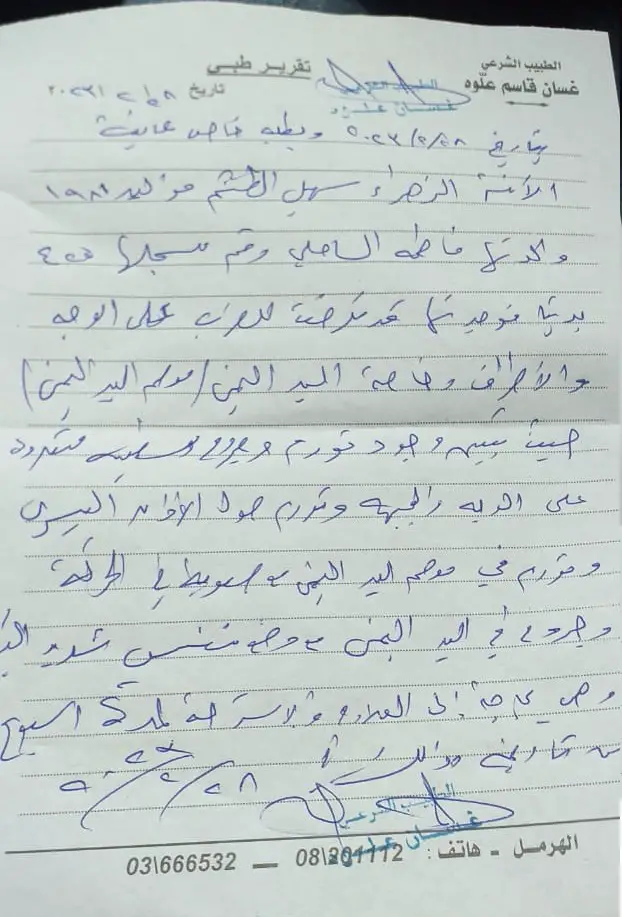 الطبيب الشرعي
غسان قاسم علّوه
تقرير طبي
تاريخ ٢٨/٢/٢٠٢٣
بتاريخ ٢٨/٢/٢٠٢٣ وبطلب خاص عاينت
الآنسة الزهراء سهيل الطشم مواليد ١٩٨١
والدتها فاطمة الساحلي ورقم سجلها
فوجدتها قد تعرضت للضرب على الوجه
والأطراف وخاصة اليد اليمنى (معصم اليد اليمنى)
حيث تبين وجود تورم وجروح سطحية متعددة
على الوجه والجبهة وتورم حول الأذن اليسرى
وتورم في معصم اليد اليمنى مع صعوبة في الحركة
وجروح في اليد اليمنى مع وضع نفسي شديد
وهي بحاجة إلى العلاج والاستراحة لمدة أسبوع
من تاريخه
٢٨/٢/٢٠٢٣
الطبيب الشرعي
غسان علوه
الهرمل - هاتف: 08\201112 — 03\666532